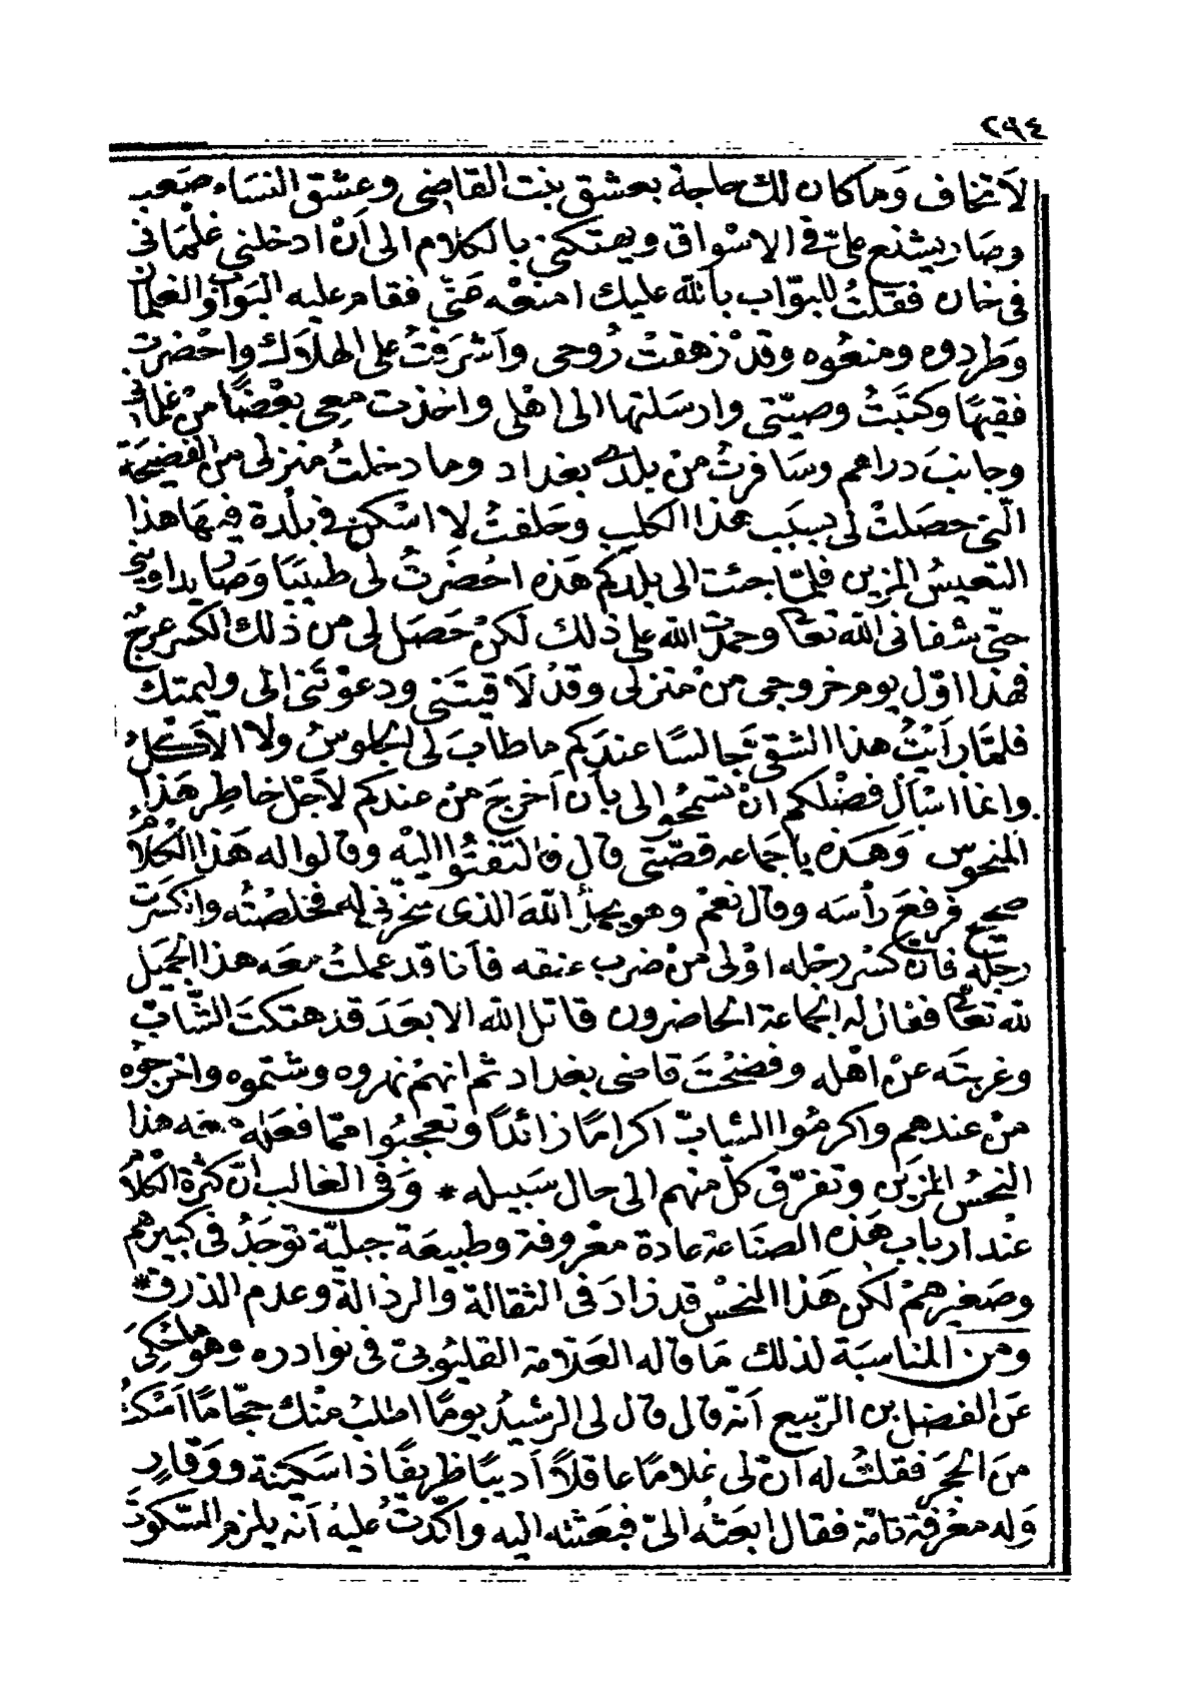 ٢٩٤
لَا تخاف وَما كان لك حاجة بعشق بنت القاضى وعِشق النسَاء صَعب
وصَار يشنع علىّ فى الاسْواق ويهتكنى بالكلام الى اَنْ ادخلنى غلْمَانى
فى خان فقلتُ للبوّاب بالله عليك امنعْه عَنّى فقام عليه البَواب والغلمان
وَطردوه ومنعُوه وقدْ زهقتْ رُوحى واَشرَفتُ على الهلاك واحْضرت
فقيهًا وكتَبَتُ وصيّتى وارسَلتها الى اهْلى واخذت معى بعْضًا منْ غلمانى
وجانبَ دراهم وسَافرتُ منْ بلدى بغداد وما دخلتُ منزلى من الفضيحَة
الّتى حصَلتْ لى بسبَب هذا الكلب وحَلفتُ لا اسْكن فى بلْدة فيهَا هذا
التعيسُ المزين فلمّا جئت الى بلدكم هَذه احْضَرتُ لى طبيبًا وَصَار يداوينى
حتّى شفانى الله تعالى وحمدت الله على ذلك لكنْ حَصَل لى من ذلك الكسر عرجٌ
فهذا اوّل يوم خروجى منْ منزلى وقدْ لَاقيتَنى ودعوْتَنى الى وليمتك
فلمّا رَاَيْتُ هذا الشقى جَالسًا عندَكم ما طابَ لى الجلوسُ ولا الاَكْلُ
وانما اسْاَل فضْلكم انْ تسْمحُوا لى بأن اَخرجَ منْ عندكم لاَجْل خاطِر هَذا
المنحوس وَهَذه يا جمَاعه قصّتى قال فالتفتُوا اليْه وقالوا له هَذا الكَلامُ
صحيح فرفعَ رأسَه وقال نعَمْ وهو يحمَدُ اللهَ الذى سخّرنى له فخلصْتُه وانكسَرت
رجلُه فان كسْر رجْله اوْلى منْ ضرب عنقه فاَنا قد عملتُ معَه هذا الجَميل
لله تعَالى فقال له الجماعة الحاضرون قاتل الله الابعَدَ قد هتكتَ الشّابّ
وغربتَه عنْ اهْله وفضَحْتَ قاضى بغداد ثم انهمْ نهروه وشتموه واخرجُوه
منْ عندهم واكرمُوا الشابّ اكرامًا زائدًا وتعجبُوا ممّا فعَله معَه هذا
النحْسُ المزَين وتفرّق كلّ منهم الى حال سَبيله * وَفى الغالب انّ كثرَة الكَلام
عنْد ارباب هَذه الصنَاعة عادة معْروفة وطبيعَة جبليّة توجَدُ فى كبيرهم
وصَغيرهمْ لكن هَذا النحْسُ قد زادَ فى الثقالة والرذالة وعدم الذوق *
ومن المناسبَة لذلك مَا قاله العَلّامة القليُوبىّ فى نوادره وهو مَا حُكىَ
عَن الفضل بن الرّبيع اَنّه قال قال لى الرشيدُ يومًا اطلبُ منْك حجّامًا اَسْكتُ
منَ الحجَر فقلتُ له انّ لى غلامًا عاقلاً اَديبًا ظريفًا ذا سَكينة ووَقارٍ
وَله معْرفَة تامّة فقال ابعَثْه الىّ فبَعَثته اليه واكّدتُ عليْه اَنه يلزم السّكوتَ